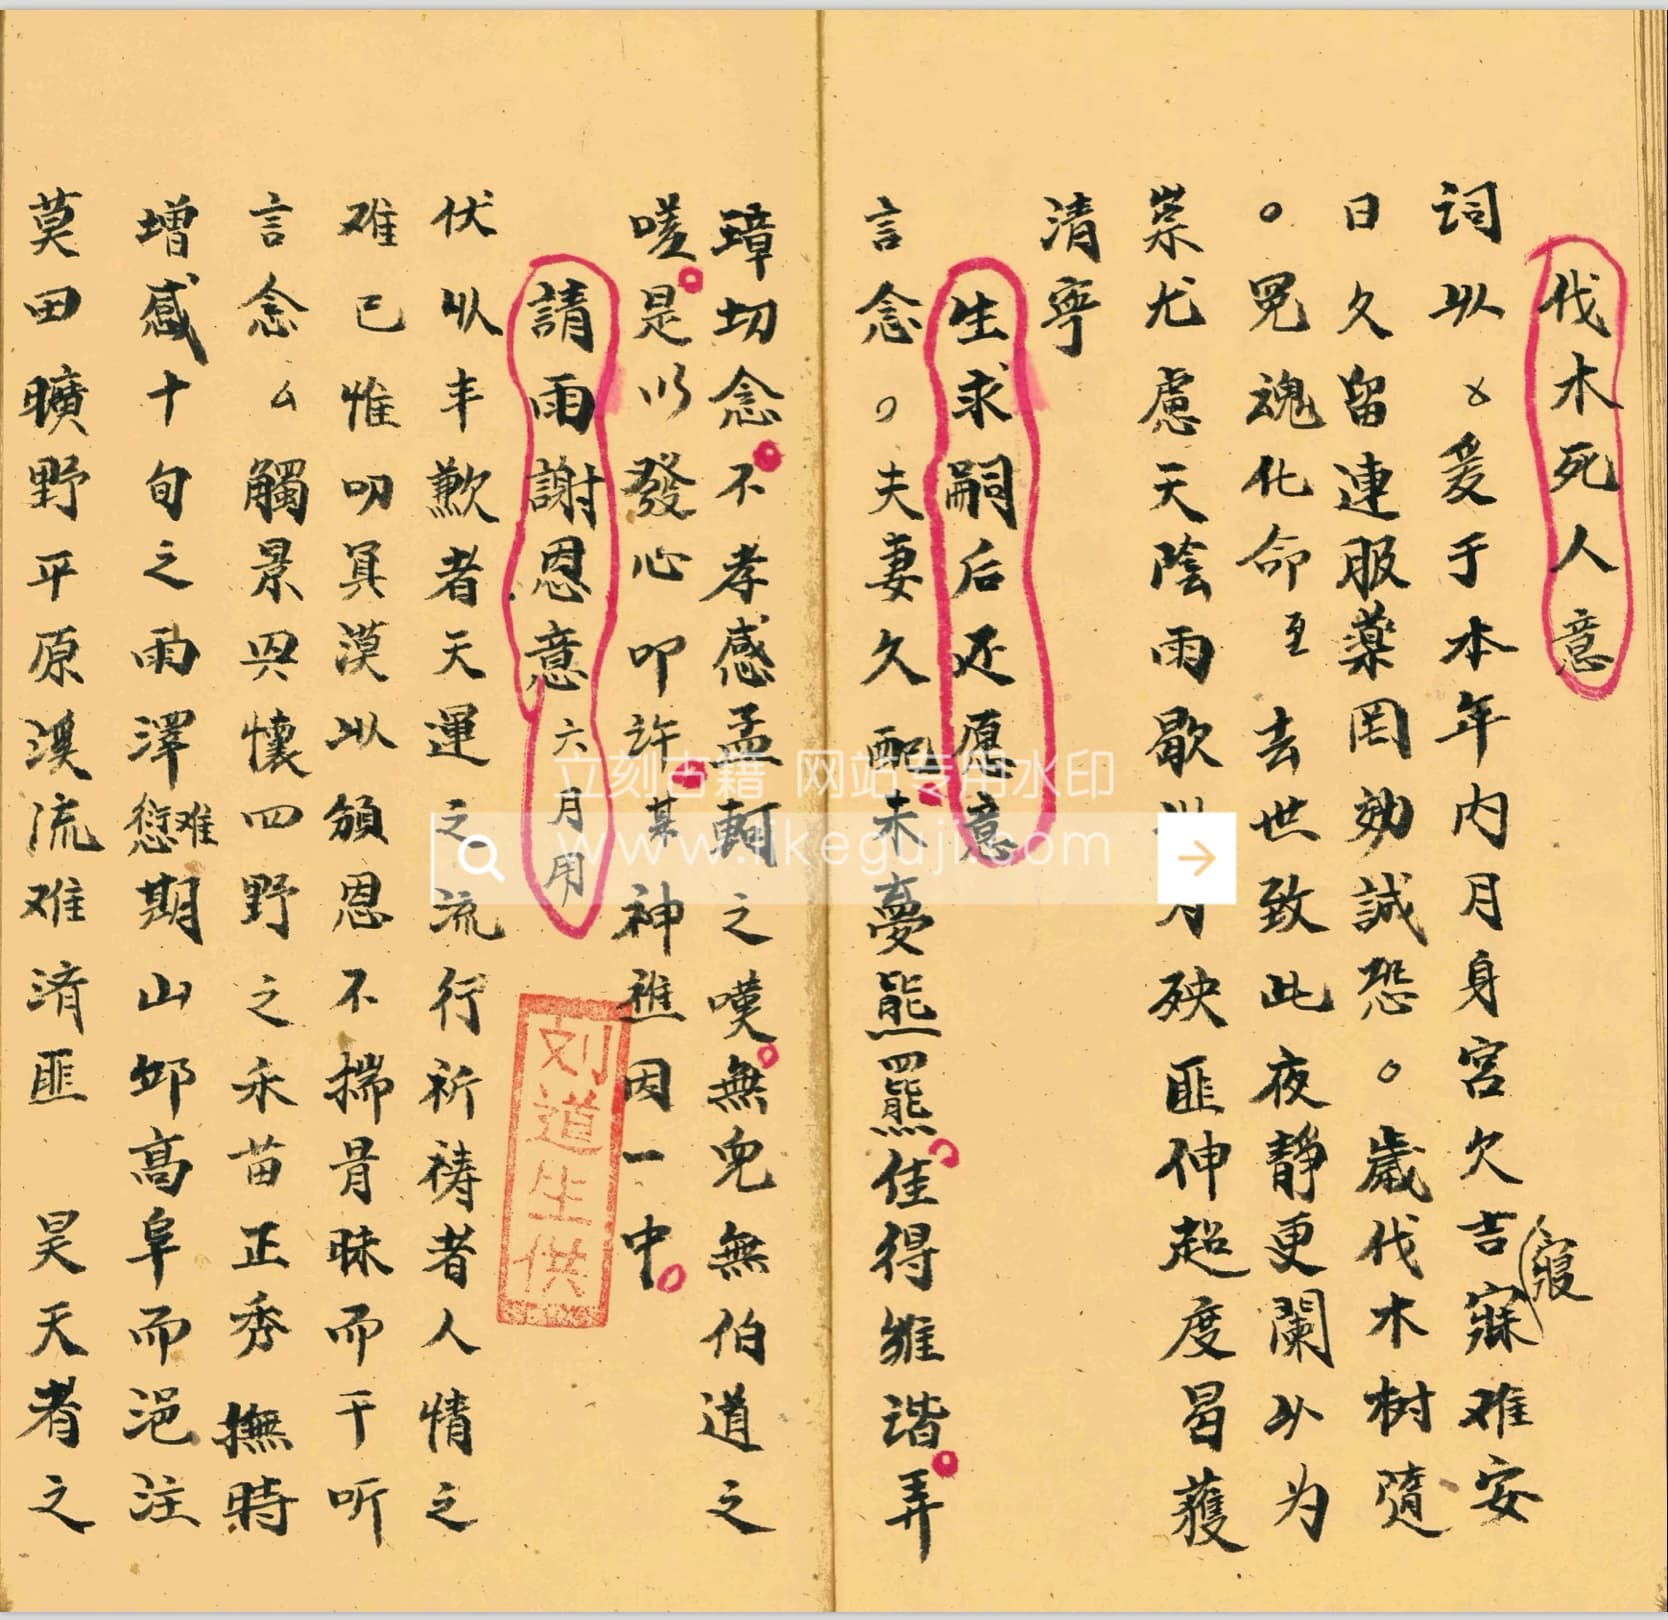 伐木死人意
詞以〤爰于本年内月身宮欠吉寤(寢)难安
日久留連服藥罔効誠恐○歲伐木树隨
○冤魂化命至去世致此夜静更闌以为
祟尤慮天陰雨歇 月 殃匪伸超度曷蒦
清寧
生求嗣后还愿意
言念○夫妻久配未夢熊羆佳得雖谐弄
璋切念不孝感孟軻之嘆無兒無伯道之
嗟是以發心叩許某神 因一中
請雨謝恩意六月用
伏以丰歉者天運之流行祈祷者人情之
难已惟叨其漠以頒恩不揣骨昧而干听
言念厶觸景興懷四野之禾苗正秀撫時
增感十旬之雨澤愆难期山邱高阜而浥注
莫田曠野平原溪流难済匪 昊天者之
刘道生供
立刻古籍 网站专用水印
www.likeguji.com